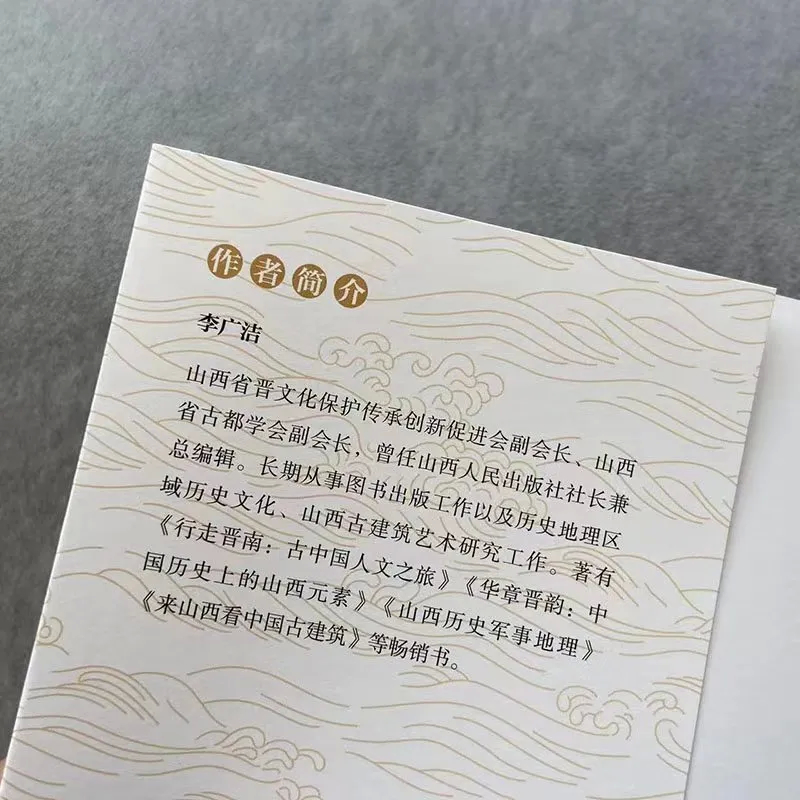 作者简介
李广洁
山西省晋文化保护传承创新促进会副会长、山西
省古都学会副会长，曾任山西人民出版社社长兼
总编辑。长期从事图书出版工作以及历史地理区
域历史文化、山西古建筑艺术研究工作。著有
《行走晋南：古中国人文之旅》《华章晋韵：中
国历史上的山西元素》《山西历史军事地理》
《来山西看中国古建筑》等畅销书。